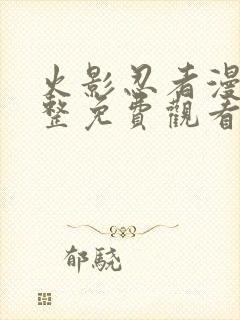 火影忍者漫
整免費觀看
郁驍